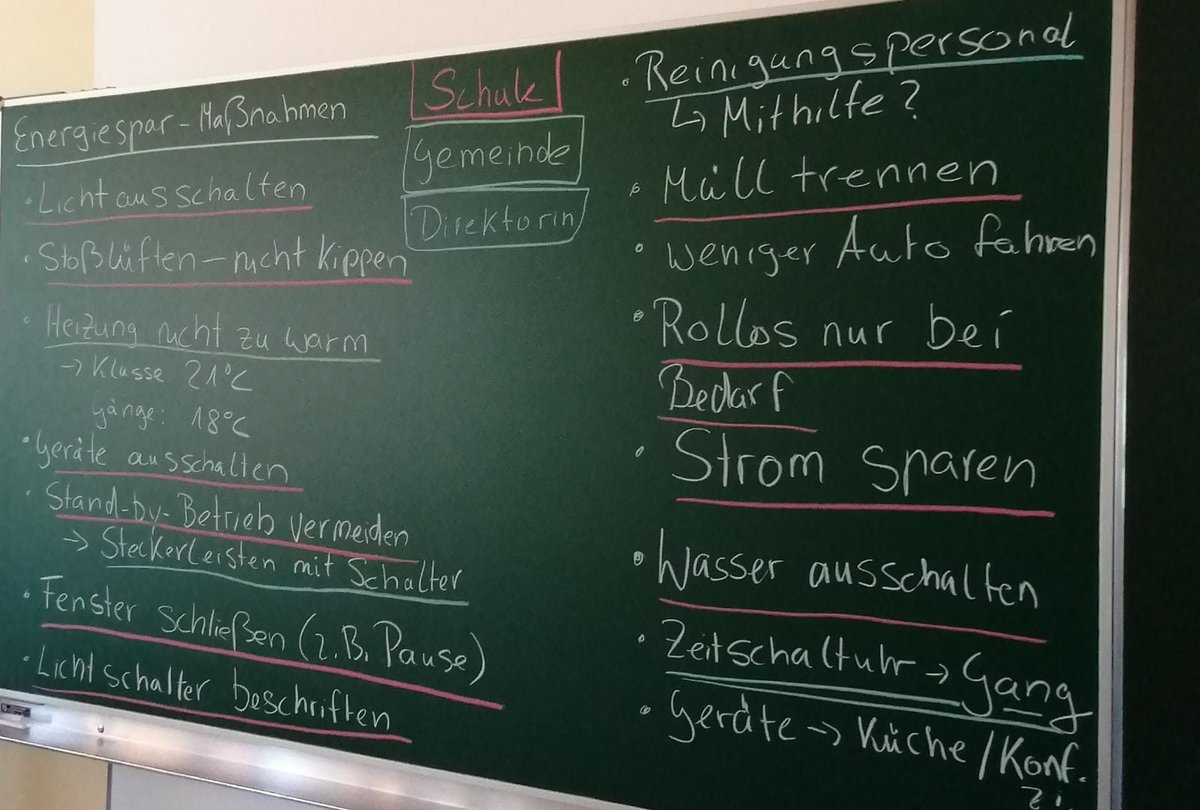 Energiespar-Maßnahmen
• Licht ausschalten
• Stoßlüften – nicht Kippen
• Heizung nicht zu warm
→ Klasse 21°C
Gänge: 18°C
• Geräte ausschalten
• Stand-by-Betrieb vermeiden
→ Steckerleisten mit Schalter
• Fenster schließen (z.B. Pause)
• Lichtschalter beschriften
Schule
Gemeinde
Direktorin
• Reinigungspersonal
↳ Mithilfe?
• Müll trennen
• weniger Auto fahren
• Rollos nur bei
Bedarf
• Strom sparen
• Wasser ausschalten
• Zeitschaltuhr → Gang
• Geräte → Küche/Konf.
Zi